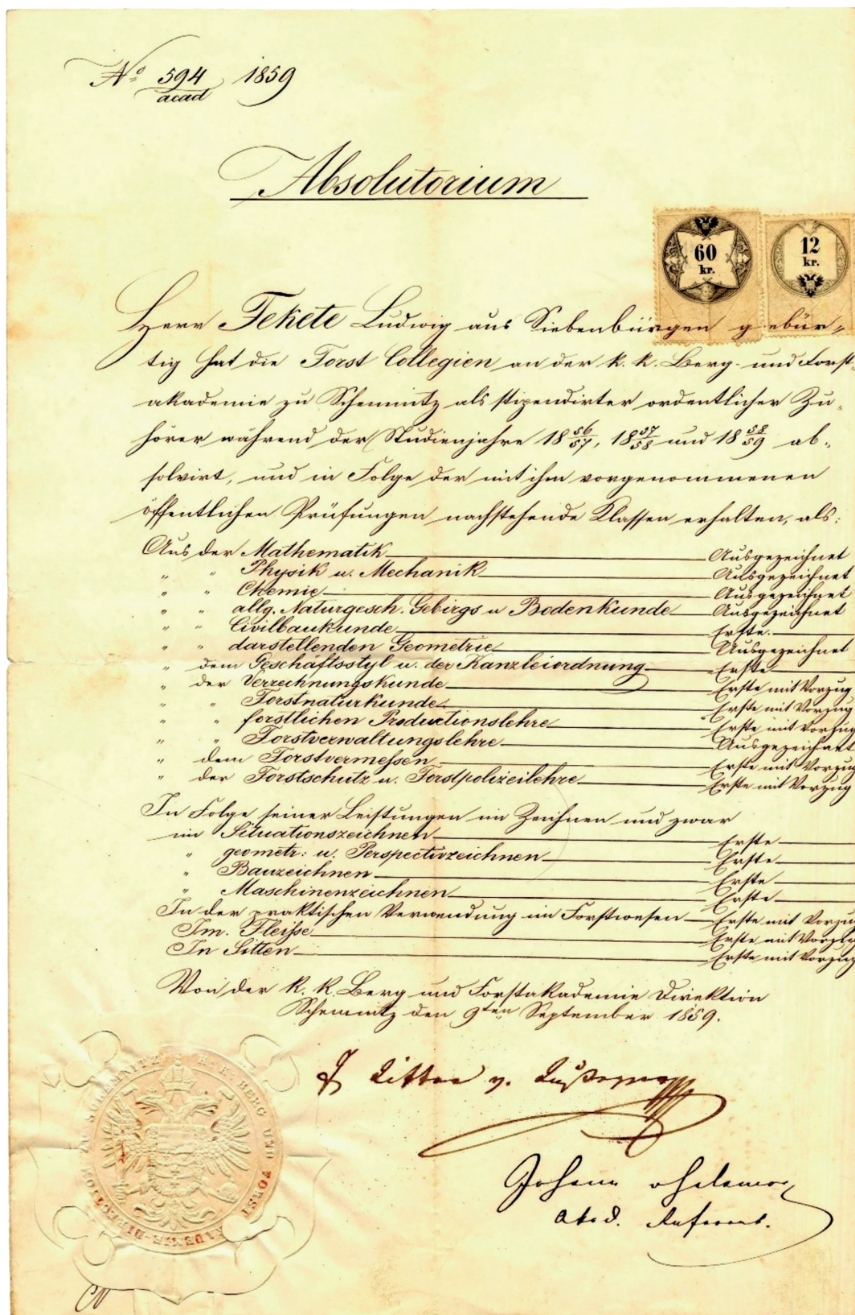 No 594 1859
acad
Absolutorium
60
kr.
12
kr.
Herr Fekete Ludwig aus Siebenbürgen gebür-
tig hat die Forst Collegien an der k. k. Berg- und Forst-
akademie zu Schemnitz als stipendirter ordentlicher Zu-
hörer während der Studienjahre 18 56/57, 18 57/58 und 18 58/59 ab-
solvirt, und in Folge der mit ihm vorgenommenen
öffentlichen Prüfungen nachstehende Klassen erhalten, als:
Aus der Mathematik Ausgezeichnet
" " Physik u. Mechanik Ausgezeichnet
" " Chemie Ausgezeichnet
" " allg. Naturgesch. Gebirgs u Bodenkunde Ausgezeichnet
" " Civilbaukunde Erste.
" " darstellenden Geometrie Ausgezeichnet
" dem Geschäftsstyl u. der Kanzleiordnung Erste
" der Verrechnungskunde Erste mit Vorzug
" " Forstnaturkunde Erste mit Vorzug
" " forstlichen Productionslehre Erste mit Vorzug
" " Forstverwaltungslehre Ausgezeichnet
" dem Forstvermessen Erste mit Vorzug
" der Forstschutz u. Forstpolizeilehre Erste mit Vorzug
In Folge seiner Leistungen im Zeichnen und zwar
im Situationszeichnen Erste
" geometr: u. Perspectivzeichnen Erste
" Bauzeichnen Erste
" Maschinenzeichnen Erste
In der praktischen Verwendung im Forstwesen Erste mit Vorzug
Im Fleisse Erste mit Vorzug
In Sitten Erste mit Vorzug
Von der k. k. Berg und Forstakademie Direktion
Schemnitz den 9ten September 1859.
Ritter v.
Johann
K. K. BERG UND FORST AKADEMIE-DIRECTION ZU SCHEMNITZ